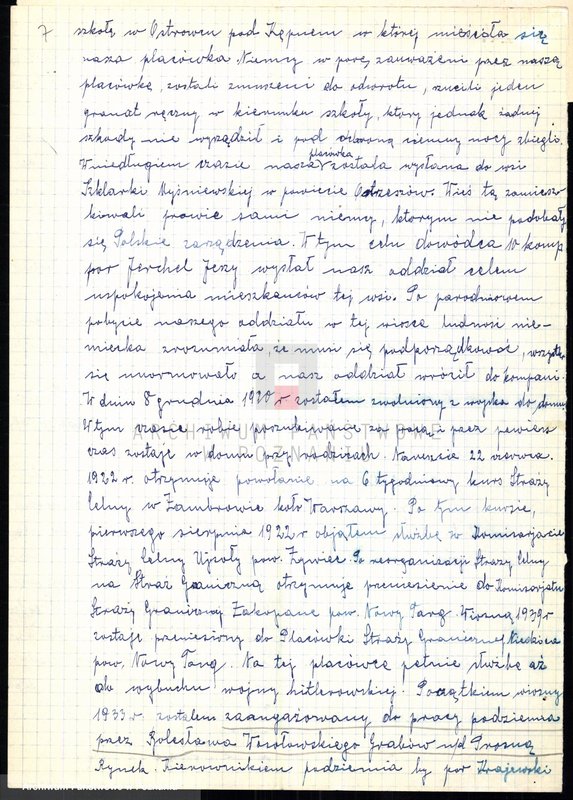 7 szkołę w Ostrowcu pod Kępnem w której mieściła się
nasza placówka. Niemcy w porę zauważeni przez naszą
placówkę, zostali zmuszeni do odwrotu, rzucili jeden
granat ręczny w kierunku szkoły, który jednak żadnej
szkody nie wyrządził i pod ochroną ciemnej nocy zbiegli.
W niedługiem czasie nasza placówka została wysłana do wsi
Szklarki Myśniewskiej w powiecie Ostrzeszów. Wieś tą zamiesz-
kiwali prawie sami niemcy, którym nie podobały
się Polskie zarządzenia. W tym celu dowódca 10 komp.
por Jerchel Jerzy wysłał nasz oddział celem
uspokojenia mieszkańców tej wsi. Po parodniowem
pobycie naszego oddziału w tej wiosce ludność nie-
miecka zrozumiała, że musi się podporządkować, wszystko
się unormowało a nasz oddział wrócił do kompani.
W dniu 8 grudnia 1920 r zostałem zwolniony z wojska do domu.
W tym czasie robię poszukiwanie za pracą i przez pewien
czas zostaje w domu przy rodzicach. Nareszcie 22 czerwca
1922 r. otrzymuję powołanie na 6 tygodniowy kurs Straży
Celnej w Zambrowie koło Warszawy. Po tym kursie,
pierwszego sierpnia 1922 r objąłem służbę w Komisarjacie
Straży Celnej Ujsoły pow. Żywiec. Po reorganizacji Straży Celnej
na Straż Graniczną otrzymuję przeniesienie do Komisarjatu
Straży Granicznej Zakopane pow. Nowy Targ. Wiosną 1939 r
zostaje przeniesiony do Placówki Straży Granicznej Niedzica
pow. Nowy Targ. Na tej placówce pełnie służbę aż
do wybuchu wojny hitlerowskiej. Początkiem wiosny
1933 r. zostałem zaangażowany do pracy podziemia
przez Bolesława Grabów n/d Prosną
Rynek. Kierownikiem podziemia by por Krajewski
ARCHIWUM PAŃSTWOWE
W POZNANIU